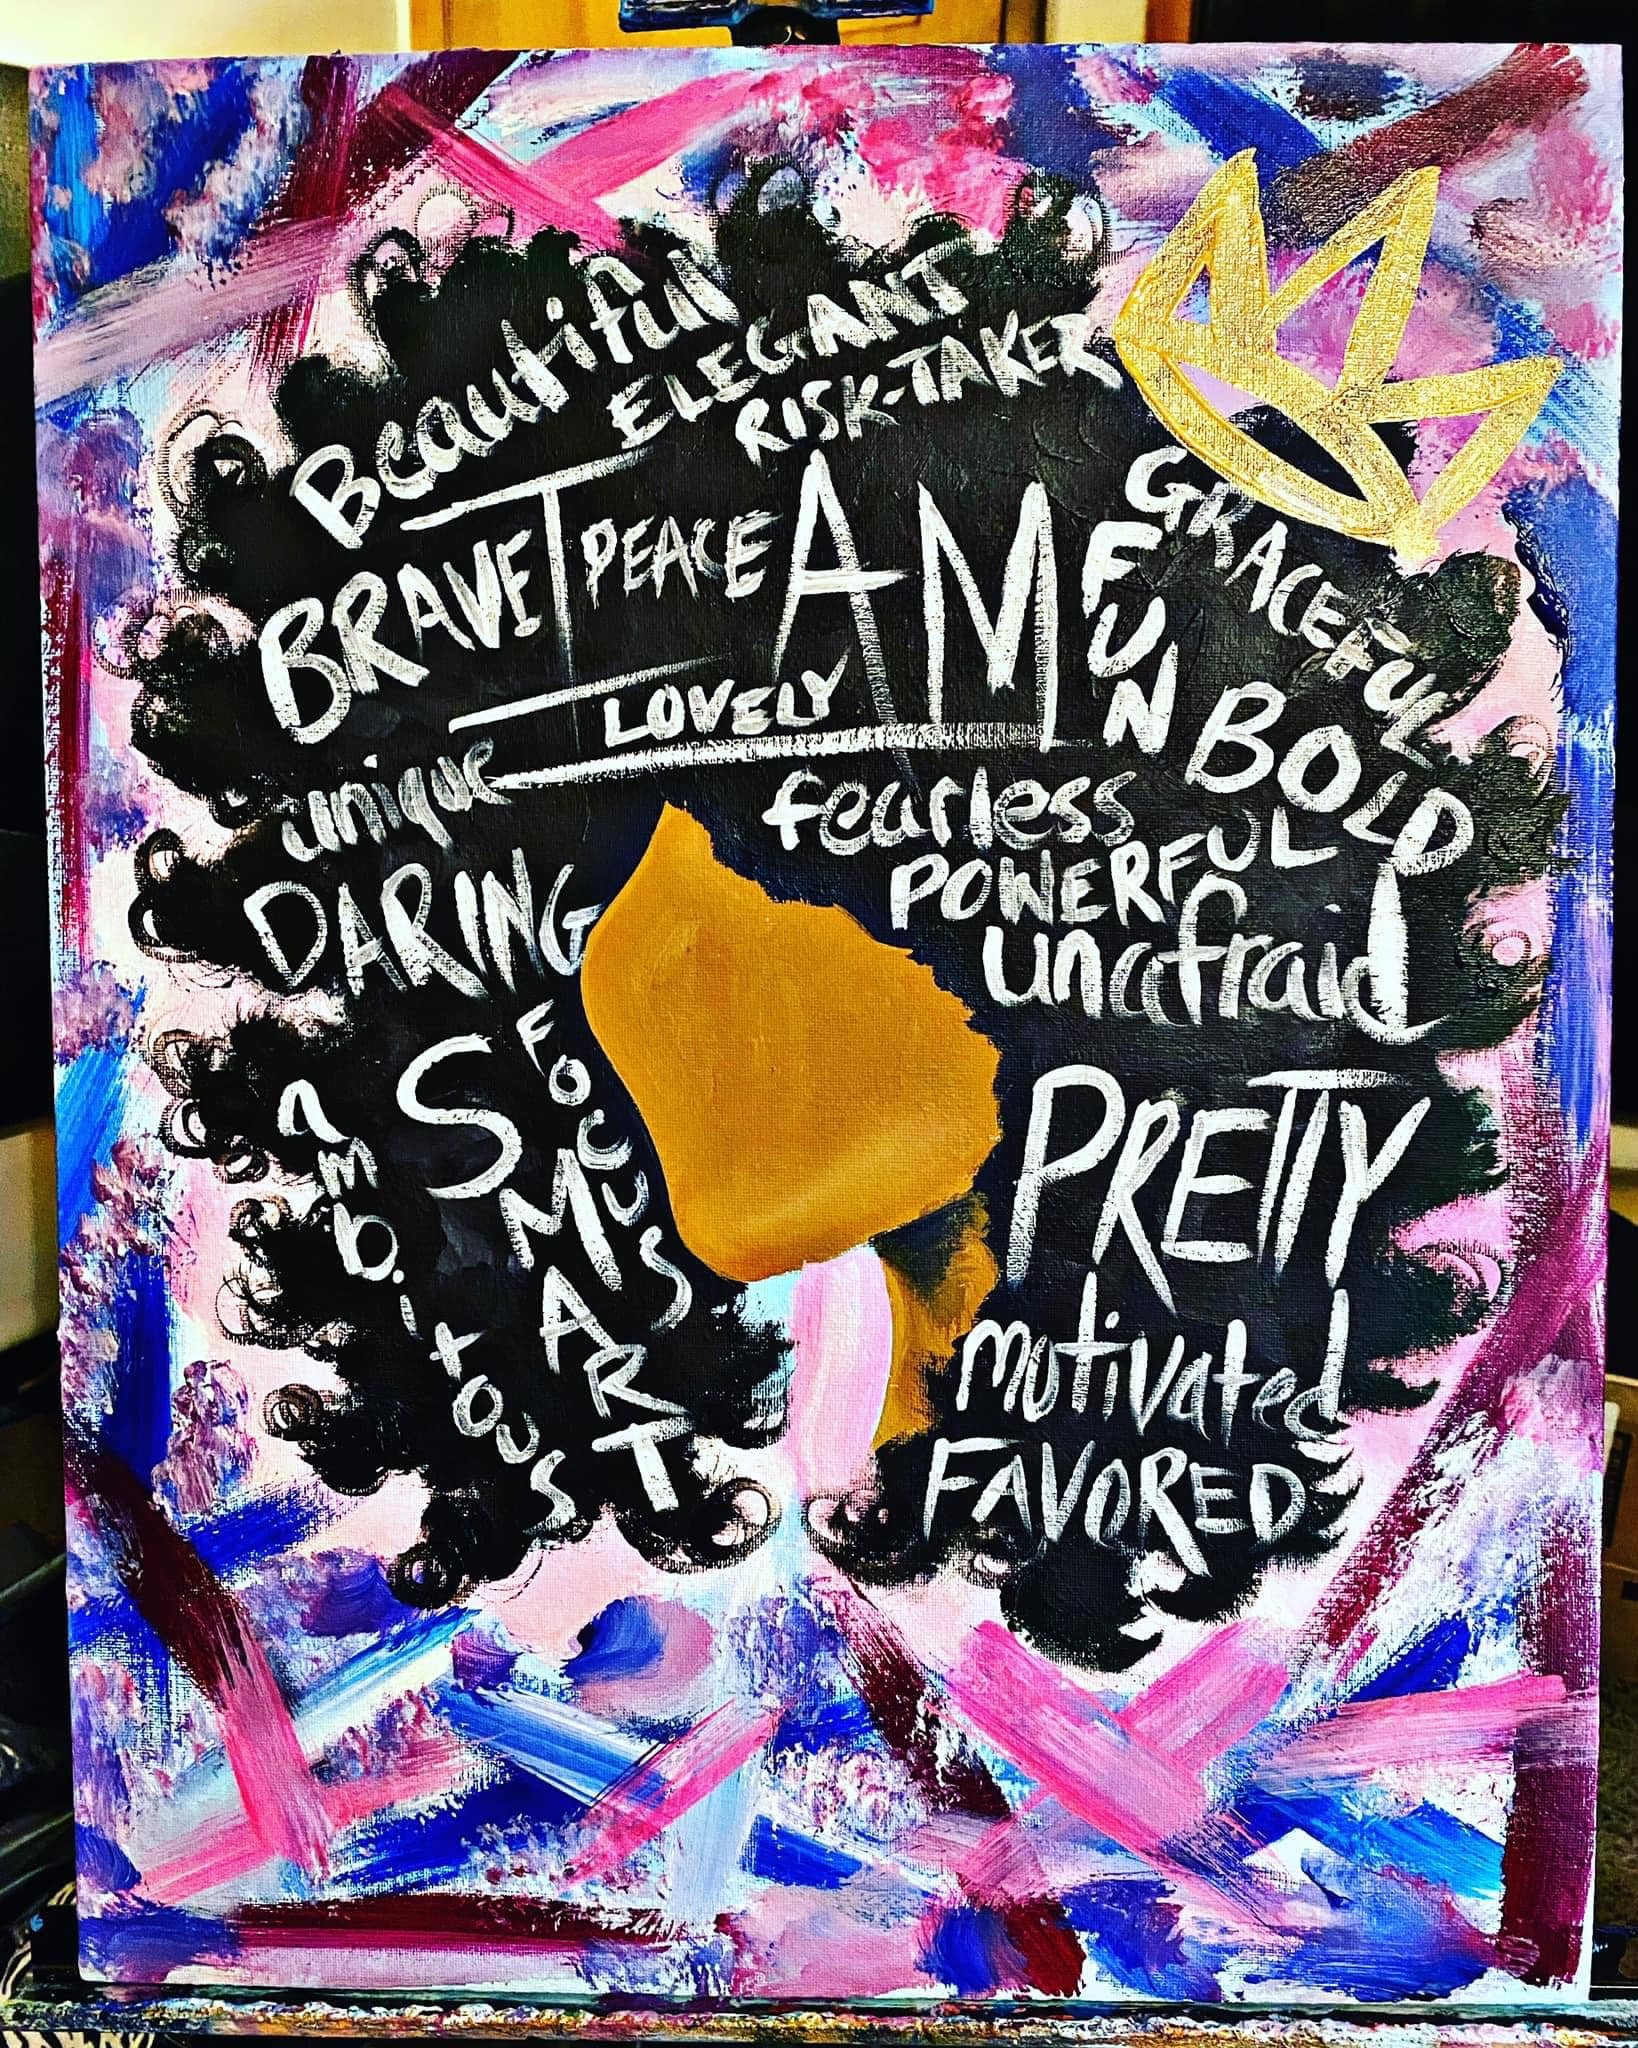 Beautiful
ELEGANT
RISK-TAKER
GRACEFUL
BRAVE
I AM
PEACE
FUN
LOVELY
BOLD
unique
fearless
DARING
POWERFUL
unafraid
FOCUS
SMART
ambitous
PRETTY
motivated
FAVORED